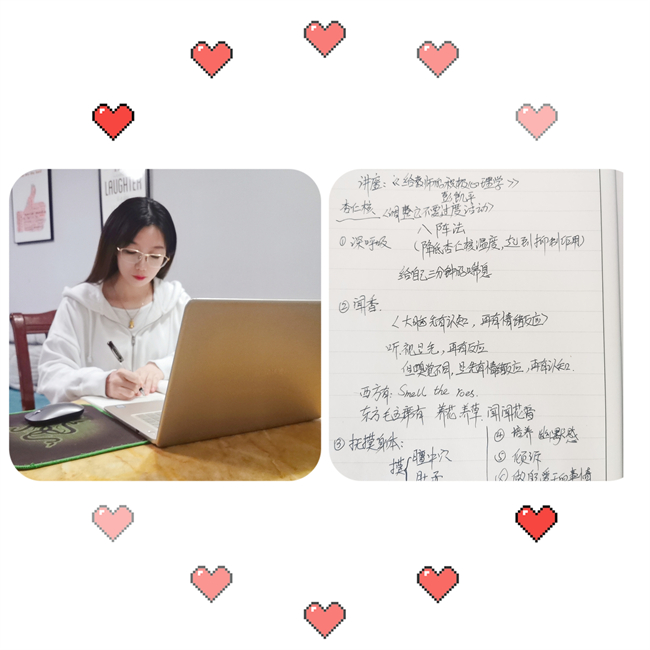 LAUGHTER
讲座：《给教师的积极心理学》
彭凯平
杏仁核 <调整它不要过度活动>
八阵法
① 深呼吸 (降低杏仁核温度，起到抑制作用)
给自己三分钟的喘息
② 闻香.
<大脑先有认知，再有情绪反应>
听、视是先，再有反应
但嗅觉不同，是先有情绪反应，再有认知.
西方有: Smell the roes.
东方 有 养花 养草 闻闻花香
③ 抚摸身体:
摸 膻中穴
肚子
④ 培养 幽默感
⑤ 倾诉
⑥ 做 的事情